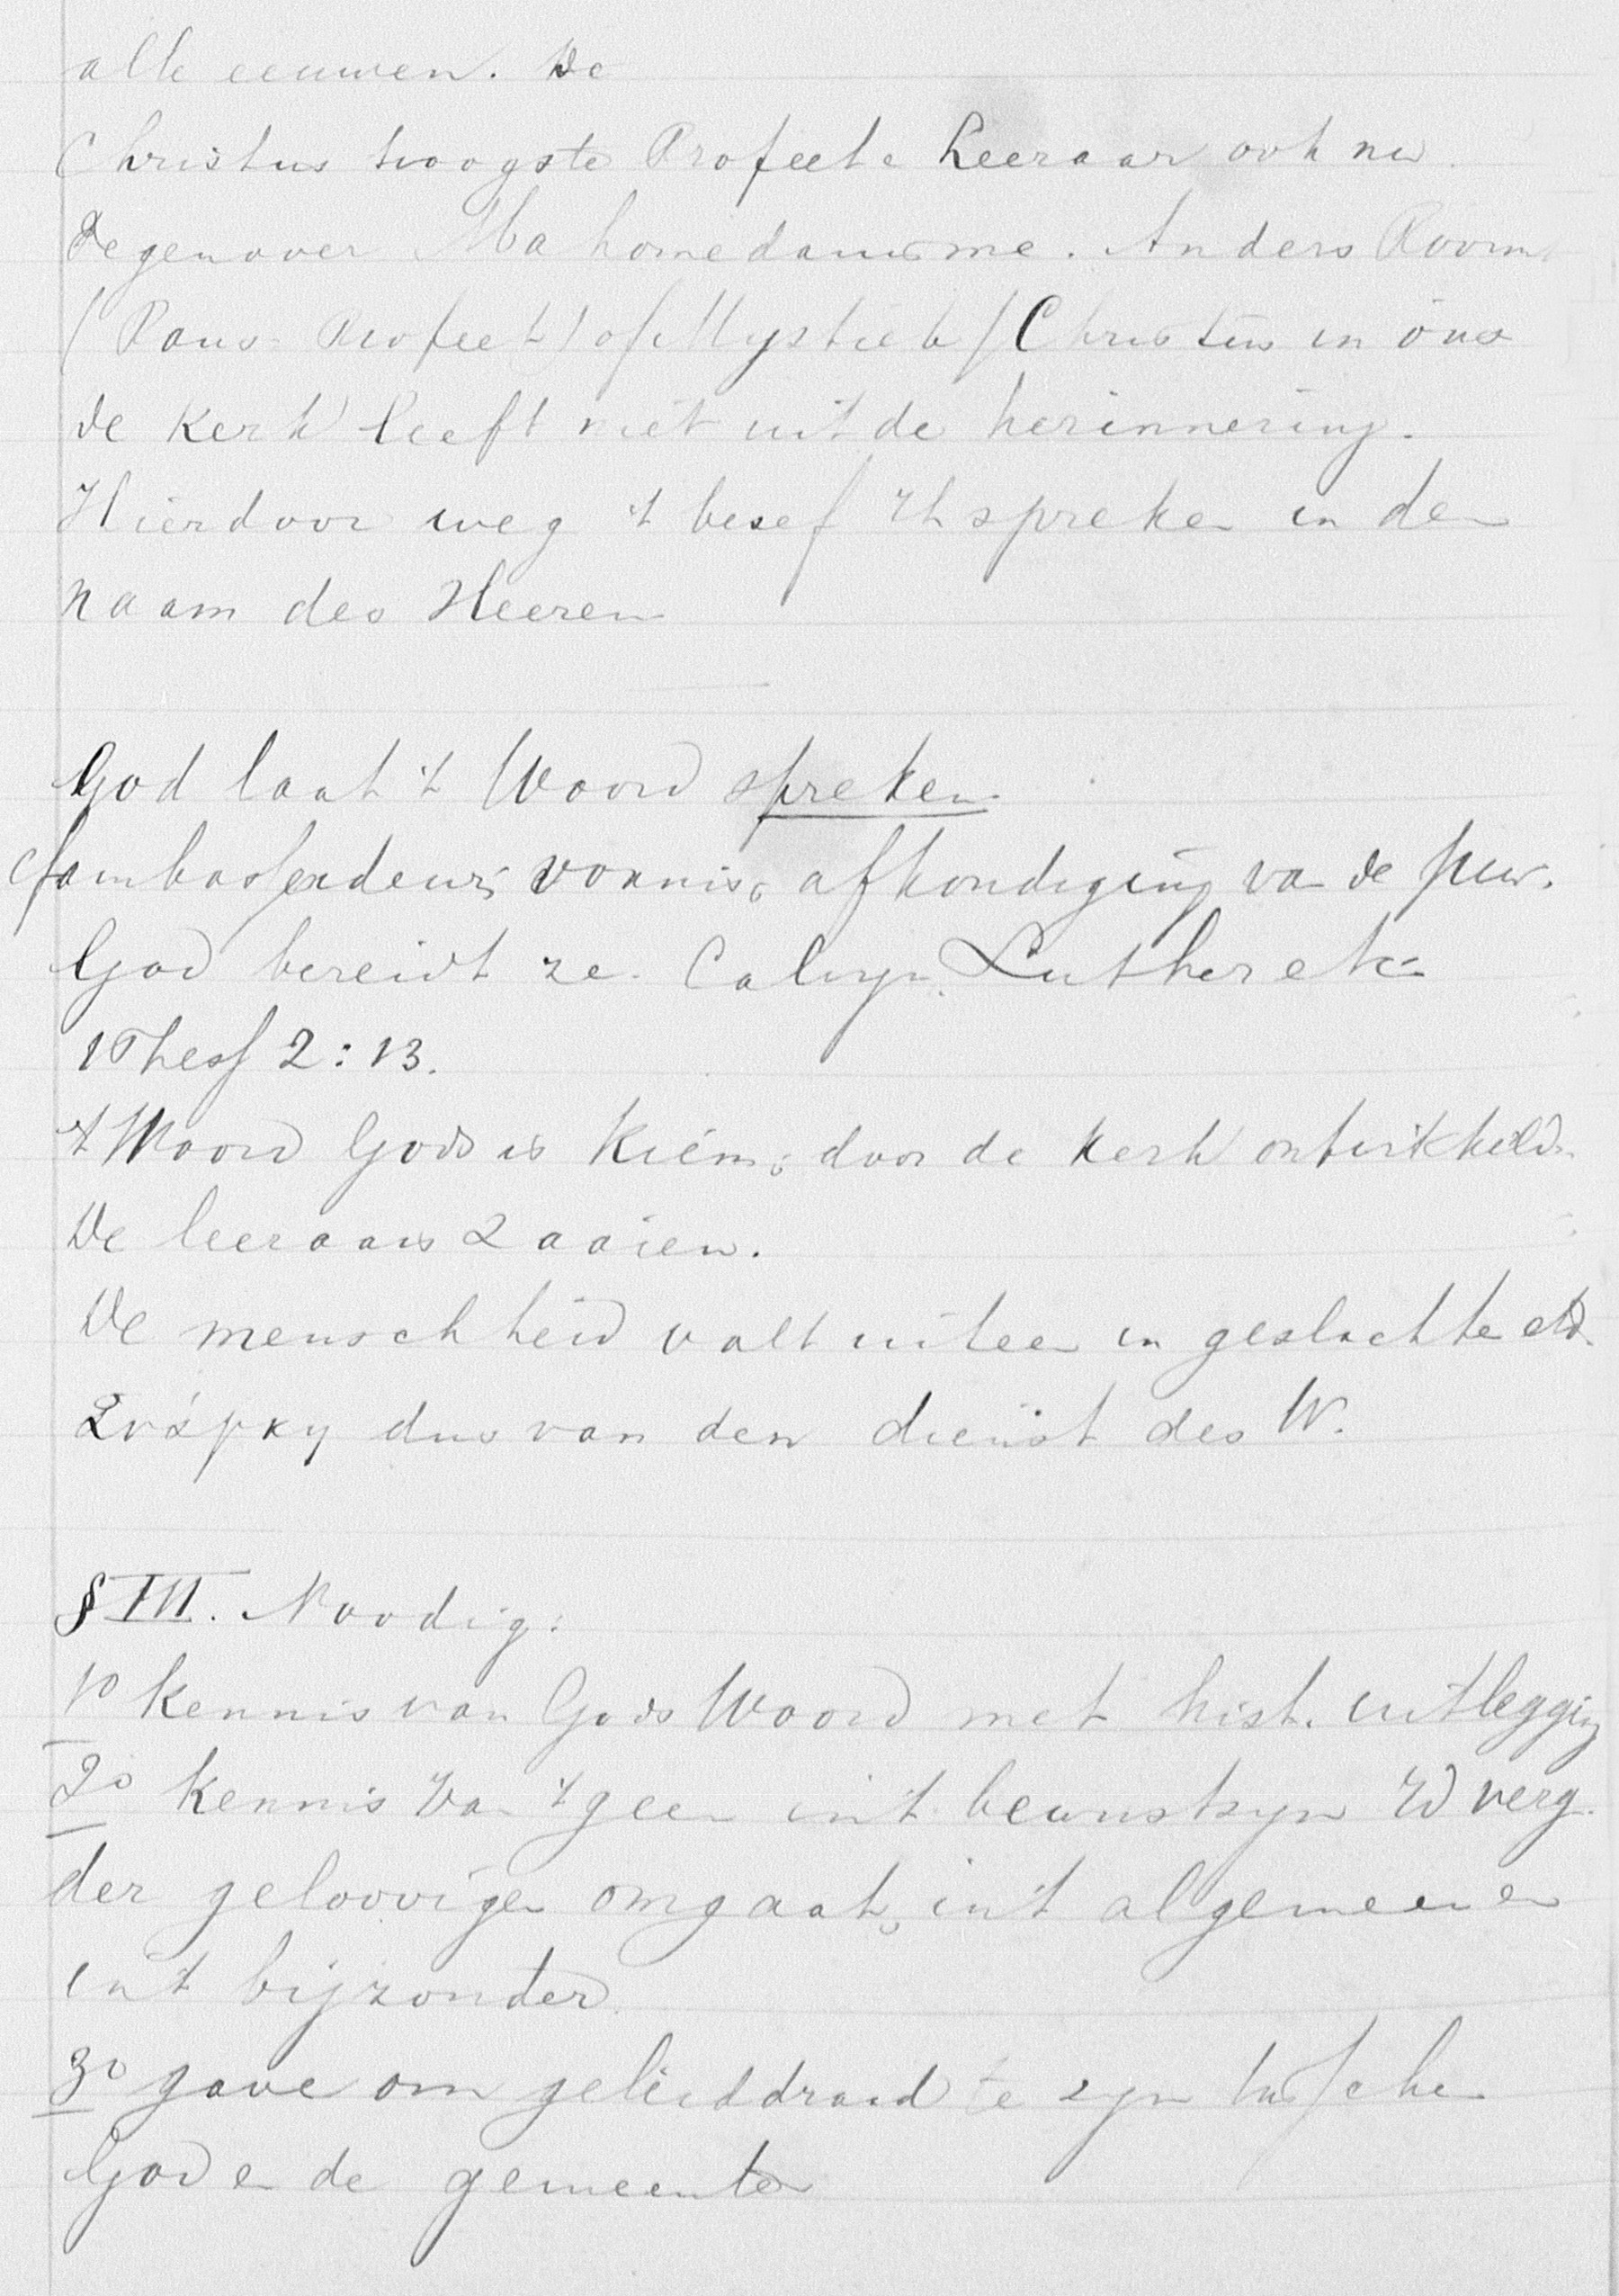 alle eeuwen. De
Christus hoogste Profeet & Leeraar ook nu.
Tegenover Mahomedanisme. Anders Room
(Paus = Profeet) of Mystiek / Christus in ons
de Kerk leeft niet uit de herinnering.
Hierdoor weg 't besef spreken in den
naam des Heeren
God laat 't Woord spreken.
ambassadeur, vonnis, afkondiging van de
God bereidt ze. Calvijn. Luther etc
1 Thess 2:13.
't Woord Gods is Kiem, door de Kerk ontwikkeld.
De leeraars zaaien.
De menschheid valt uiteen in geslachten etc.
dus van den dienst des W.
§ III. Noodig:
1o Kennis van Gods Woord met hist. uitlegging
2o Kennis van 'tgeen in 't bewustzijn vd verg.
der geloovigen omgaat, in 't algemeen en
in 't bijzonder
3o gave om geleiddraad te zijn tusschen
God en de gemeente